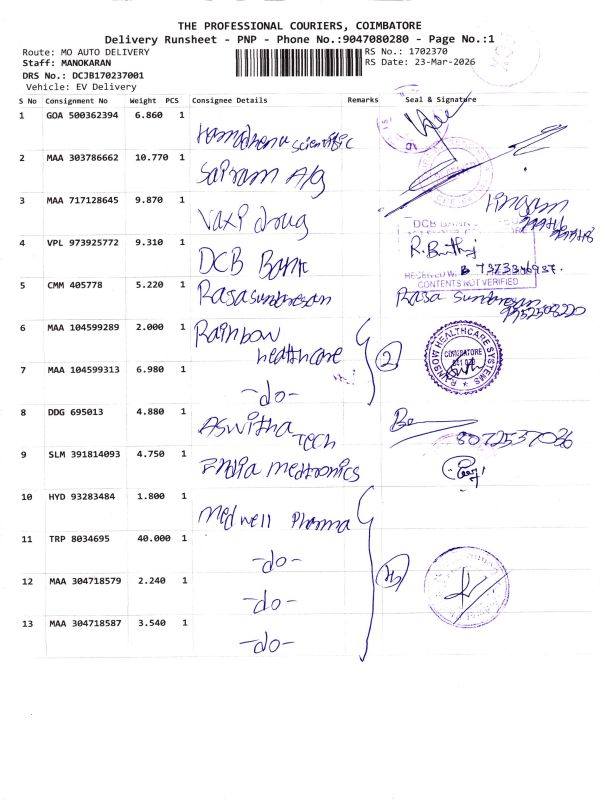 THE PROFESSIONAL COURIERS, COIMBATORE
Delivery Runsheet - PNP - Phone No.:9047080280 - Page No.:1
Route: MO AUTO DELIVERY RS No.: 1702370
Staff: MANOKARAN RS Date: 23-Mar-2026
DRS No.: DCJB170237001
Vehicle: EV Delivery
S No Consignment No Weight PCS Consignee Details Remarks Seal & Signature
1 GOA 500362394 6.860 1 scientific
2 MAA 303786662 10.770 1 Sairam A/g
3 MAA 717128645 9.870 1 Vaxi drug
4 VPL 973925772 9.310 1 DCB Bank
DCB BANK
R.
RECEIVED
CONTENTS NOT VERIFIED
5 CMM 405778 5.220 1 Rasasundaresan Rasa Sundaresan
6 MAA 104599289 2.000 1 Rainbow healthcare 2
RAINBOW HEALTHCARE SYSTEMS
COIMBATORE
7 MAA 104599313 6.980 1 -do-
8 DDG 695013 4.880 1 Aswitha Tech
9 SLM 391814093 4.750 1 India medtronics
10 HYD 93283484 1.800 1 Medwell Pharma
11 TRP 8034695 40.000 1 -do- 4
12 MAA 304718579 2.240 1 -do-
13 MAA 304718587 3.540 1 -do-